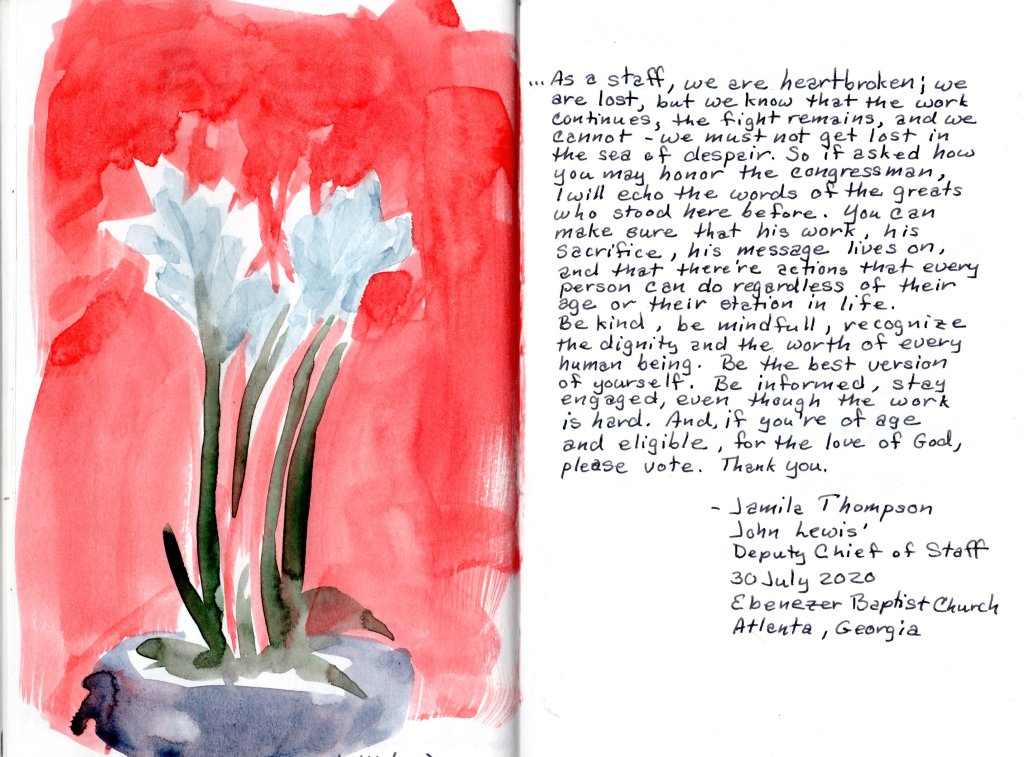 ... As a staff, we are heartbroken; we
are lost, but we know that the work
continues, the fight remains, and we
cannot - we must not get lost in
the sea of despair. So if asked how
you may honor the congressman,
I will echo the words of the greats
who stood here before. You can
make sure that his work, his
sacrifice, his message lives on,
and that there're actions that every
person can do regardless of their
age or their station in life.
Be kind, be mindfull, recognize
the dignity and the worth of every
human being. Be the best version
of yourself. Be informed, stay
engaged, even though the work
is hard. And, if you're of age
and eligible, for the love of God,
please vote. Thank you.
- Jamila Thompson
John Lewis'
Deputy Chief of Staff
30 July 2020
Ebenezer Baptist Church
Atlanta, Georgia